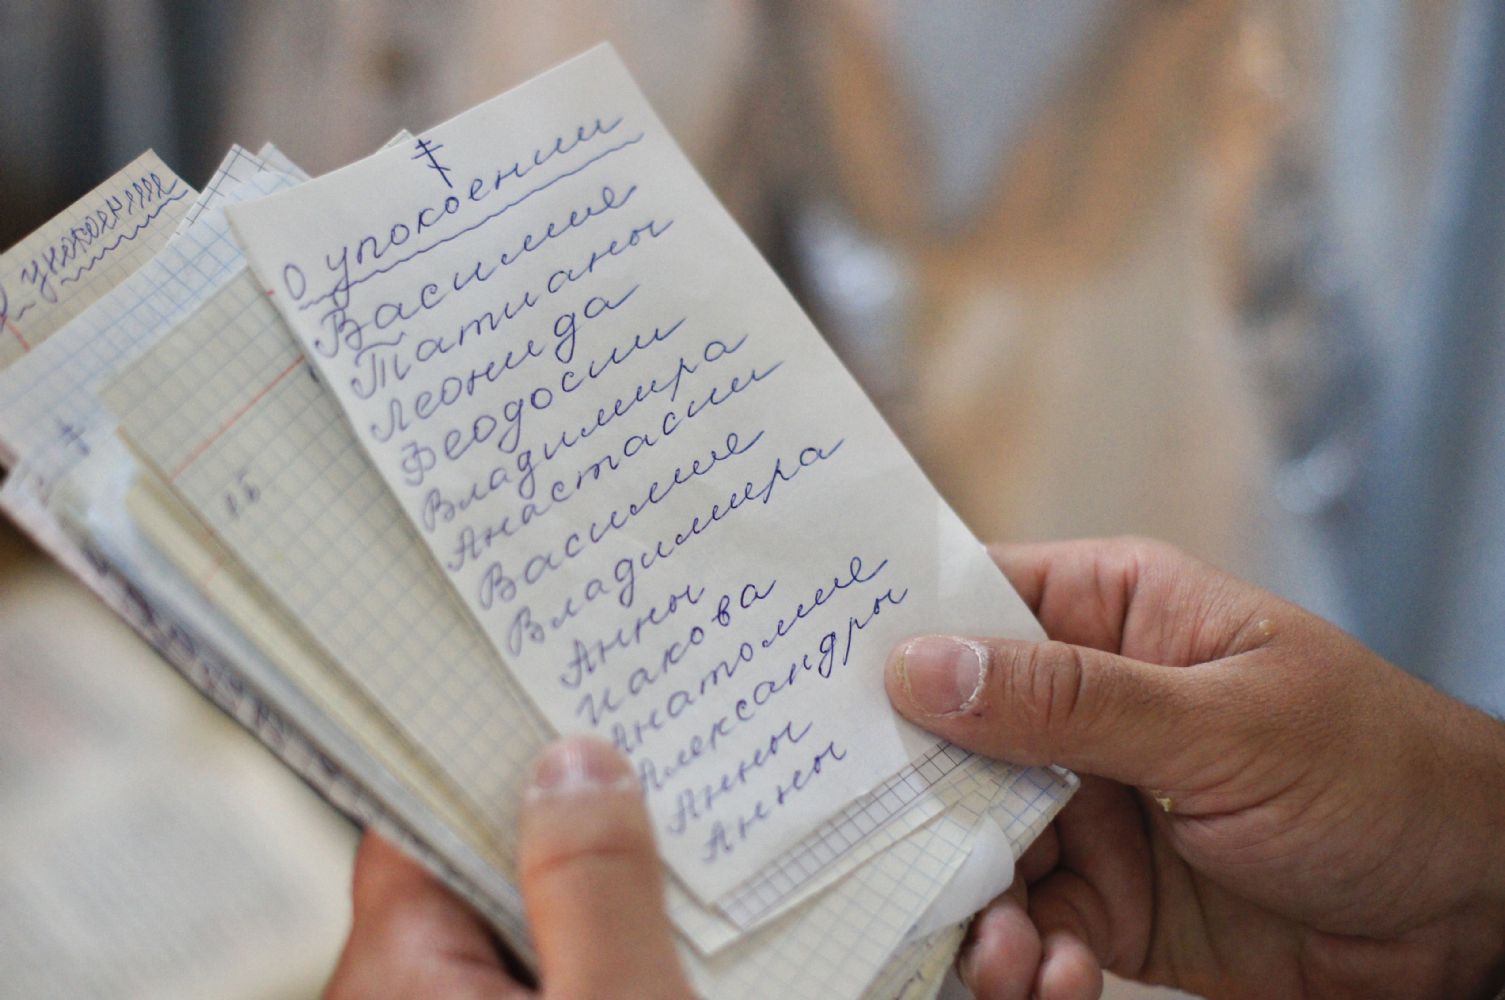 О упокоении
Василие
Татианы
Леонида
Феодосии
Владимира
Анастасии
Василие
Владимира
Анны
Иакова
Анатолие
Александры
Анны
Анны
О упокоении
15